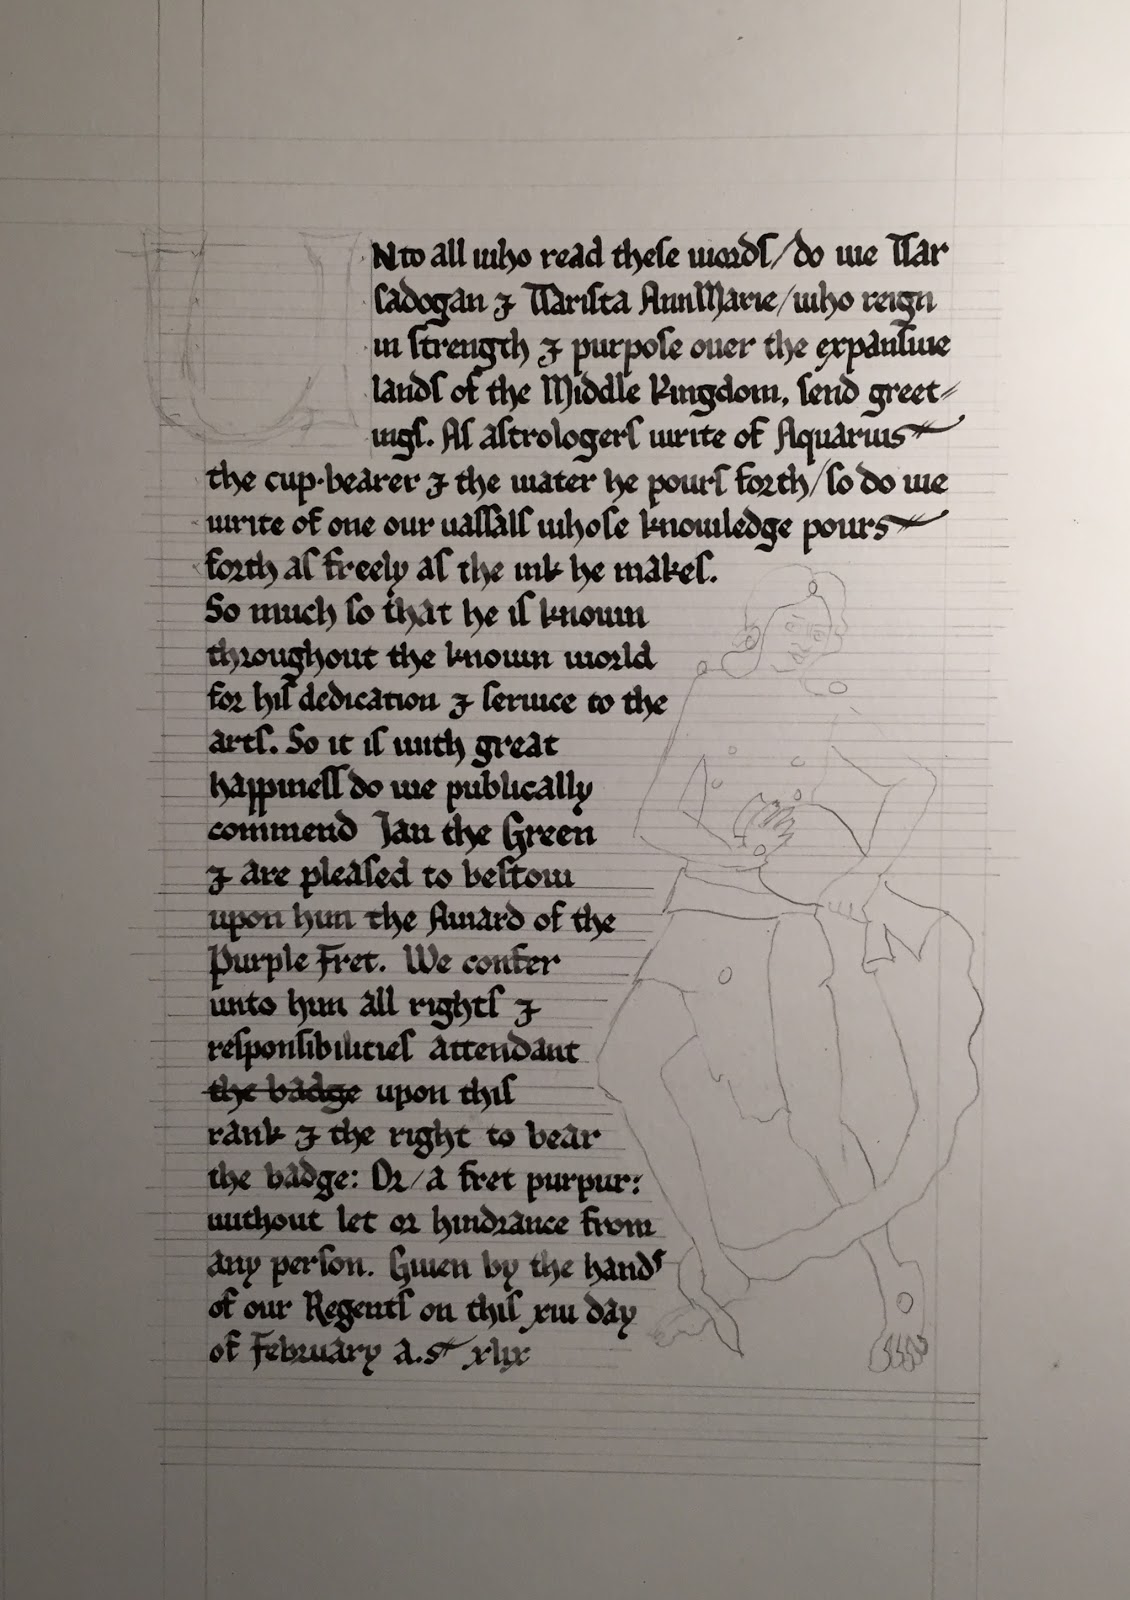 U
Nto all who read these words/do we Tsar
Cadogan ⁊ Tsarista AnnMarie/who reign
in strength ⁊ purpose over the expansive
lands of the Middle Kingdom, send greet=
ings. As astrologers write of Aquarius
the cup·bearer ⁊ the water he pours forth/so do we
write of one our vassall whose knowledge pours
forth as freely as the ink he makes.
So much so that he is known
throughout the known world
for his dedication ⁊ service to the
arts. So it is with great
happiness do we publically
commend Ian the Green
⁊ are pleased to bestow
upon him the Award of the
Purple Fret. We confer
unto him all rights ⁊
responsibilities attendant
the badge upon this
rank ⁊ the right to bear
the badge: Or/a fret purpur:
without let or hindrance from
any person. Given by the hands
of our Regents on this day
of February a.s xlix